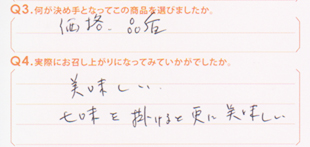 Q3.何が決め手となってこの商品を選びましたか。
価格、品名
Q4.実際にお召し上がりになってみていかがでしたか。
美味しい.
七味を掛けると更に美味しい